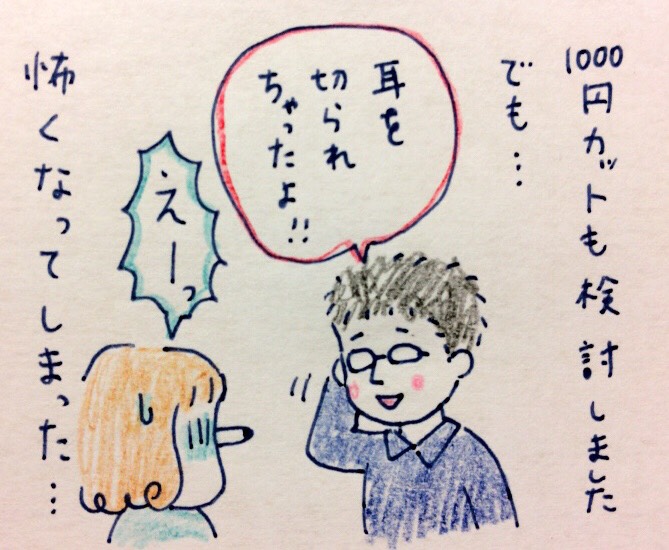 1000円カットも検討しました
でも…
耳を
切られ
ちゃったよ!!
えーっ
怖くなってしまった…